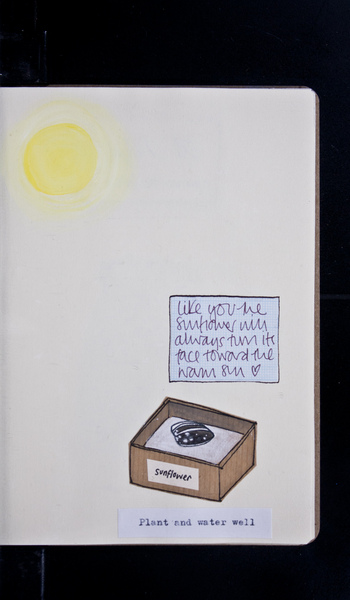 like you the
sunflower will
always turn its
face toward the
warm sun ♡
sunflower
Plant and water well